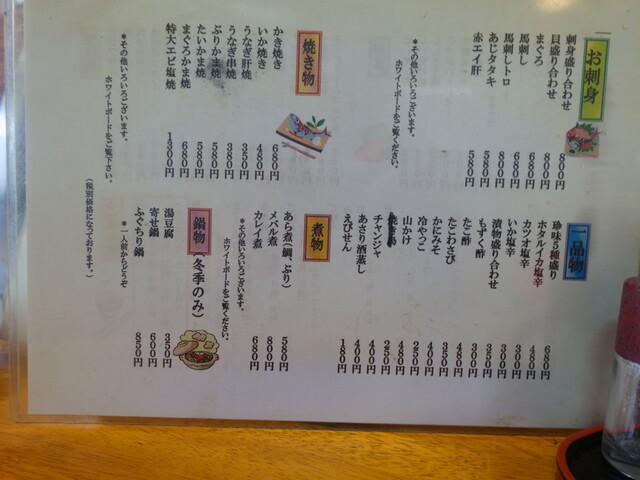 お刺身
刺身盛り合わせ 800円
貝盛り合わせ 800円
まぐろ 680円
馬刺し 680円
馬刺しトロ 800円
あじタタキ 580円
赤エイ肝 580円
*その他いろいろございます。
ホワイトボードをご覧ください。
焼き物
かき焼き 680円
いか焼き 480円
うなぎ肝焼 350円
うなぎ串焼 380円
ぶりかま焼 580円
たいかま焼 580円
まぐろかま焼 680円
特大エビ塩焼 1300円
*その他いろいろございます。
ホワイトボードをご覧下さい。
一品物
珍味5種盛り 680円
ホタルイカ塩辛 480円
カツオ塩辛 300円
いか塩辛 300円
漬物盛り合わせ 350円
もずく酢 300円
たこ酢 480円
たこわさび 350円
かにみそ 400円
冷やっこ 250円
山かけ 480円
250円
チャンジャ 400円
あさり酒蒸し 400円
えびせん 180円
煮物
あら煮(鯛、ぶり) 580円
メバル煮 800円
カレイ煮 680円
*その他いろいろございます。
ホワイトボードをご覧ください。
鍋物(冬季のみ)
湯豆腐 350円
寄せ鍋 600円
ふぐちり鍋 850円
*一人前からどうぞ
(税別価格になっております。)